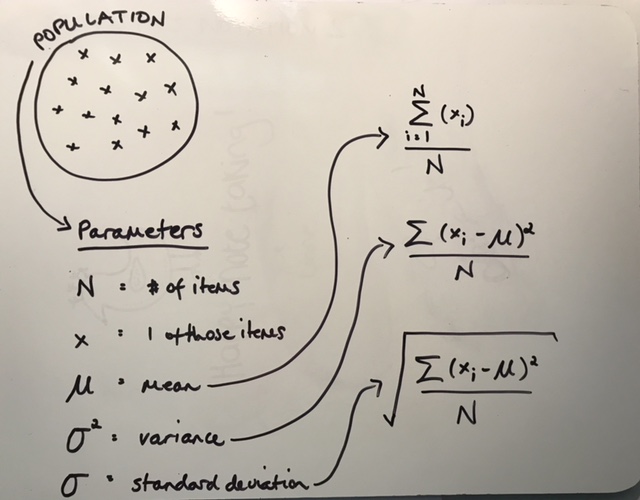 POPULATION
x x x
x x x x
x x x x x
x x
Parameters
N = # of items
x = 1 of those items
μ = mean
σ² = variance
σ = standard deviation
N
Σ (xᵢ)
i=1
N
Σ (xᵢ - μ)²
N
√ Σ (xᵢ - μ)²
N